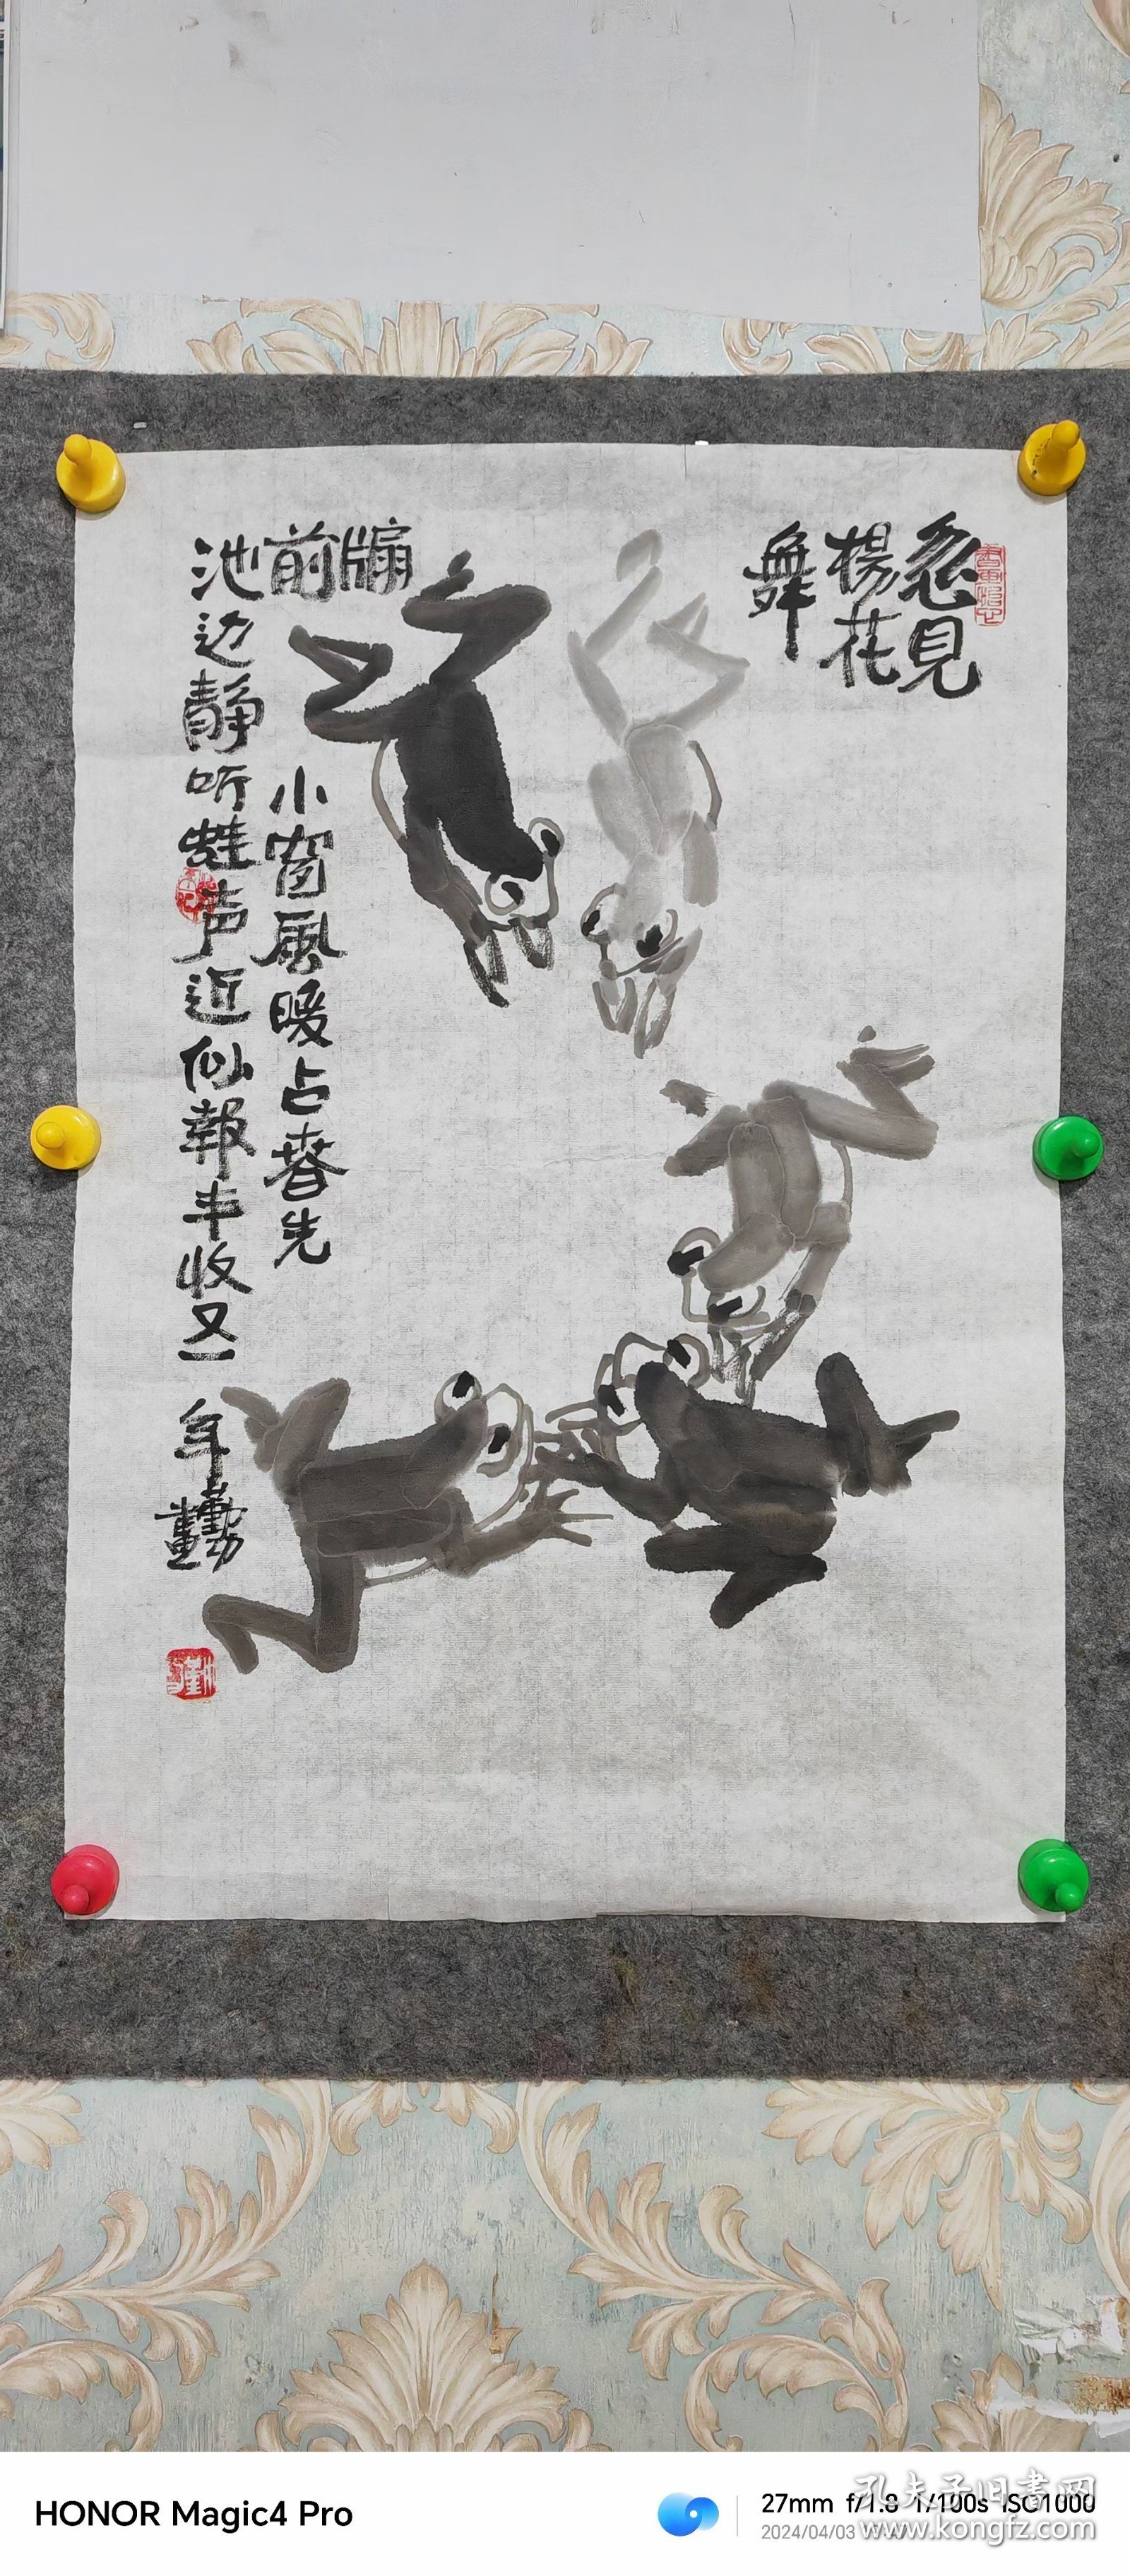 忽見
楊花
舞
牖
前
小窗風暖占春先
池边静听蛙声近似報丰收又一年
勤畫
HONOR Magic4 Pro
27mm f/1.8 1/100s ISO1000
2024/04/03
孔夫子旧书网
www.kongfz.com